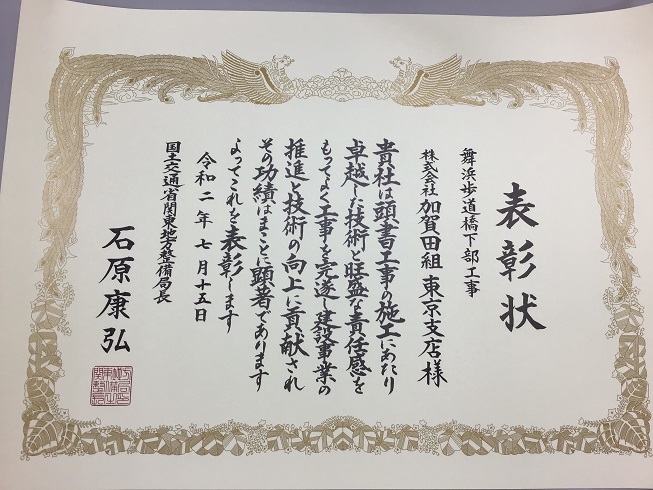 表彰状
舞浜歩道橋下部工事
株式会社 加賀田組 東京支店様
貴社は頭書工事の施工にあたり
卓越した技術と旺盛な責任感を
もってよく工事を完遂し建設事業の
推進と技術の向上に貢献され
その功績はまことに顕著であります
よってこれを表彰します
令和二年七月十五日
国土交通省関東地方整備局長
石原康弘